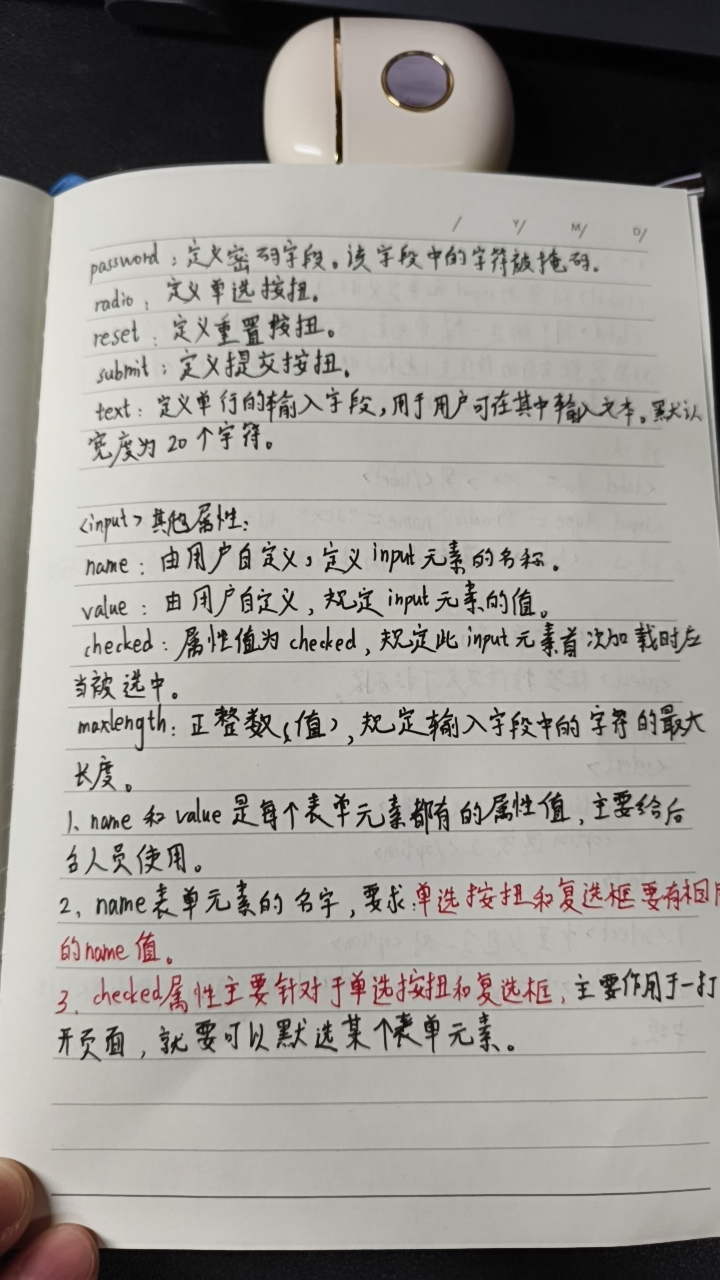 / Y/ M/ D/
password：定义密码字段。该字段中的字符被掩码.
radio：定义单选按扭。
reset：定义重置按扭。
submit：定义提交按扭.
text：定义单行的输入字段，用于用户可在其中输入文本。默认
宽度为20个字符。
<input>其他属性：
name：由用户自定义，定义input元素的名称.
value：由用户自定义，规定input元素的值。
checked：属性值为checked，规定此input元素首次加载时应
当被选中。
maxlength：正整数(值)，规定输入字段中的字符的最大
长度。
1、name和value是每个表单元素都有的属性值，主要给后
台人员使用。
2、name表单元素的名字，要求：单选按扭和复选框要有相同
的name值。
3、checked属性主要针对于单选按扭和复选框，主要作用于一打
开页面，就要可以默选某个表单元素。